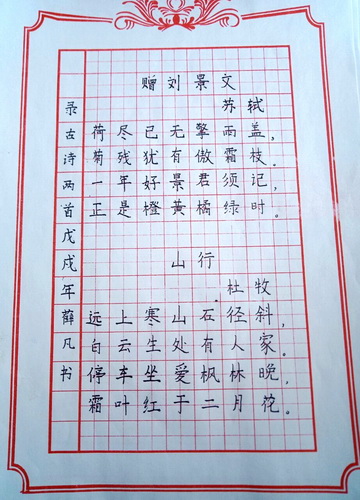 赠刘景文
苏轼
荷尽已无擎雨盖，
菊残犹有傲霜枝。
一年好景君须记，
正是橙黄橘绿时。
山行
杜牧
远上寒山石径斜，
白云生处有人家。
停车坐爱枫林晚，
霜叶红于二月花。
录古诗两首戊戌年薛凡书